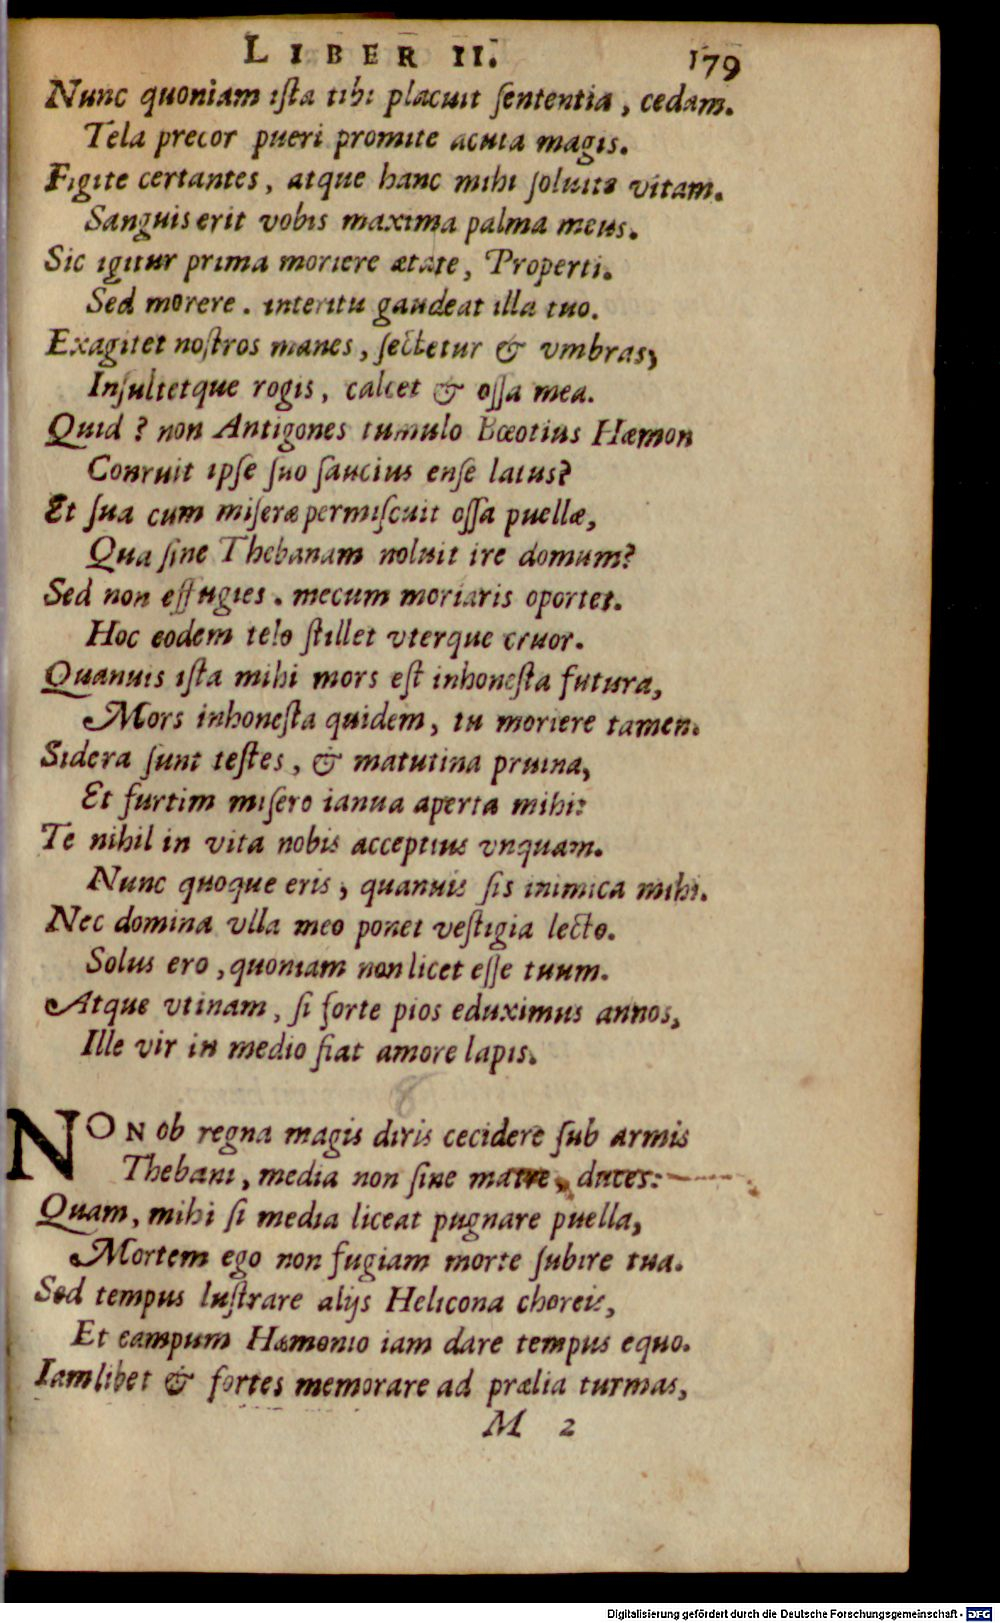 LIBER II. 179
Nunc quoniam ista tibi placuit sententia, cedam.
Tela precor pueri promite acuta magis.
Figite certantes, atque hanc mihi soluite vitam.
Sanguis erit vobis maxima palma meus.
Sic igitur prima moriere ætate, Properti.
Sed morere. interitu gaudeat illa tuo.
Exagitet nostros manes, sectetur & vmbras,
Insultetque rogis, calcet & ossa mea.
Quid? non Antigones tumulo Bœotius Hæmon
Conruit ipse suo saucius ense latus?
Et sua cum miseræ permiscuit ossa puellæ,
Qua sine Thebanam noluit ire domum?
Sed non effugies. mecum moriaris oportet.
Hoc eodem telo stillet vterque cruor.
Quanuis ista mihi mors est inhonesta futura,
Mors inhonesta quidem, tu moriere tamen.
Sidera sunt testes, & matutina pruina,
Et furtim misero ianua aperta mihi:
Te nihil in vita nobis acceptius vnquam.
Nunc quoque eris, quanuis sis inimica mihi.
Nec domina vlla meo ponet vestigia lecto.
Solus ero, quoniam non licet esse tuum.
Atque vtinam, si forte pios eduximus annos,
Ille vir in medio fiat amore lapis.
8
NON ob regna magis diris cecidere sub armis
Thebani, media non sine matre, duces:
Quam, mihi si media liceat pugnare puella,
Mortem ego non fugiam morte subire tua.
Sed tempus lustrare alijs Helicona choreis,
Et campum Hæmonio iam dare tempus equo.
Iam libet & fortes memorare ad prælia turmas,
M 2
Digitalisierung gefördert durch die Deutsche Forschungsgemeinschaft - DFG